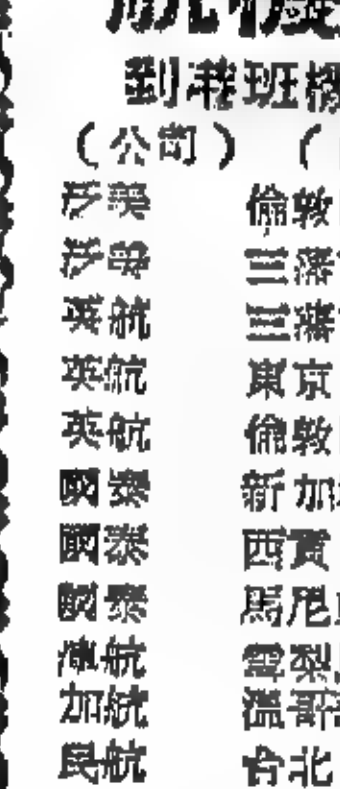 到港班機
(公司) (
泛美 倫敦
泛美 三藩
英航 三藩
英航 東京
英航 倫敦
國泰 新加
國泰 西貢
國泰 馬尼
澳航 雪梨
加航 溫哥
民航 台北